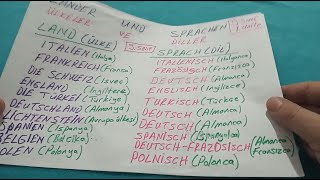 LÄNDER UND SPRACHEN
ÜLKELER VE DİLLER
LAND (ÜLKE) SPRACH (DİL)
ITALIEN (İtalya) ITALIENISCH (İtalyanca)
FRANKREICH (Fransa) FRAZÖSISCH (Fransızca)
DIE SCHWEIZ (İsviçre) DEUTSCH (Almanca)
ENGLAND (İngiltere) ENGLISCH (İngilizce)
DIE TÜRKEI (Türkiye) TÜRKISCH (Türkçe)
DEUTSCHLAND (Almanya) DEUTSCH (Almanca)
LICHTENSTEIN DEUTSCH (Almanca)
SPANIEN (İspanya) SPANISCH
BELGIEN (Belçika) DEUTSCH-FRAZÖSISCH (Almanca Fransızca)
POLEN (Polonya) POLNISCH